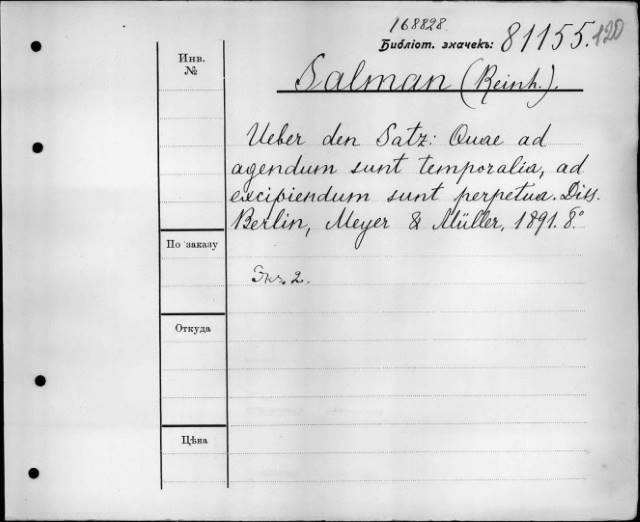 168828.
Библіот. значекъ: 81155. 120
Инв.
№
Salman (Reinh.).
Ueber den Satz: Quae ad
agendum sunt temporalia, ad
excipiendum sunt perpetua. Diss.
Berlin, Meyer & Müller, 1891. 8.°
По заказу
Экз. 2.
Откуда
Цѣна